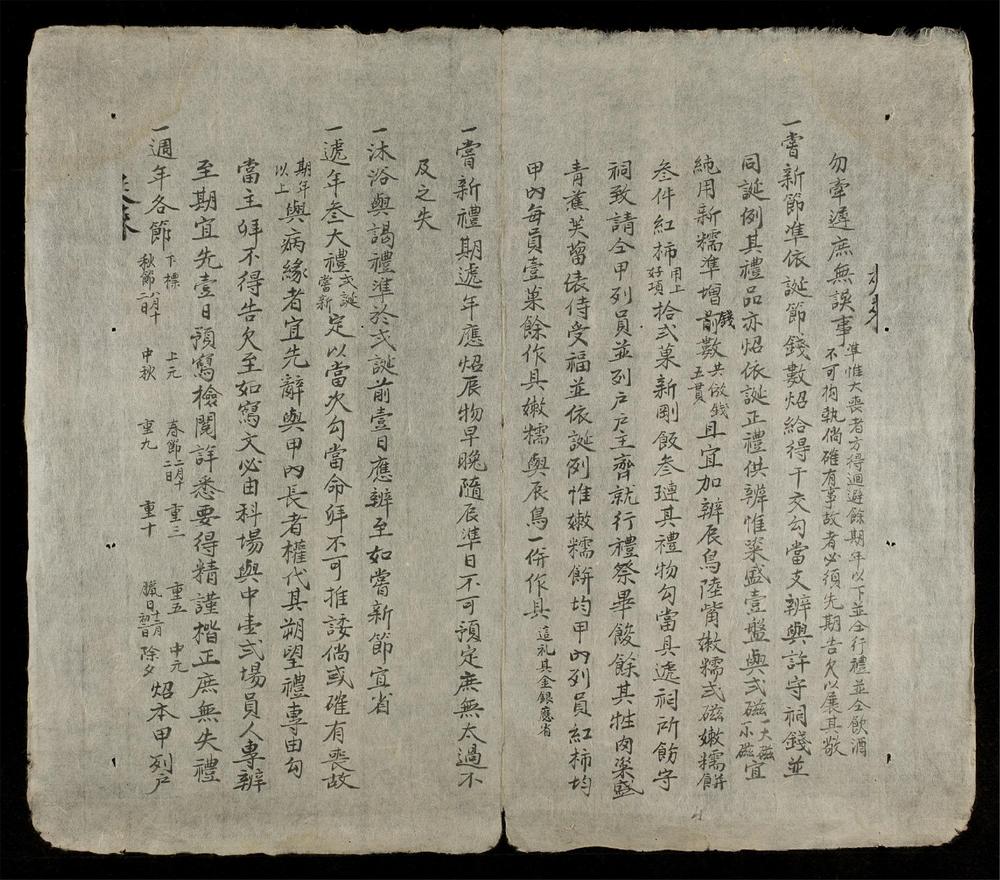 勿牽遲庶無誤事準惟大喪者方得迴避餘期年以下並仝行禮並仝飲酒不可拘執倘確有事故者必須先期告欠以展其敬
一嘗新節準依誕節錢數炤給得干交勾當支辨與許守祠錢並
同誕例其禮品亦炤依誕正禮供辨惟粢盛壹盤與弍磁一大磁一小磁宜
純用新糯準增錢前數共做錢五貫且宜加辨辰鳥陸觜嫩糯弍磁嫩糯餅
叁件紅柿用上好項拾弍菓新剛飯叁璉其禮物勾當具遞祠所飭守
祠致請仝甲列員並列戶戶主齊就行禮祭畢餕餘其牲肉粢盛
青蕉芙蒥俵侍受福並依誕例惟嫩糯餅均甲內列員紅柿均
甲內每員壹菓餘作具嫩糯與辰鳥一併作具這礼具金銀應省
一嘗新禮期遞年應炤辰物早晚隨辰準日不可預定庶無太過不
及之失
一沐浴與謁禮準於弍誕前壹日應辨至如嘗新節宜省
一遞年叁大禮弍誕嘗新定以當次勾當命拜不可推諉倘或確有喪故
期年以上與病緣者宜先辭與甲內長者權代其朔望禮專由勾
當主拜不得告欠至如寫文必由科場與中壹弍場員人專辨
至期宜先壹日預寫檢閱詳悉要得精謹楷正庶無失禮
一週年各節下標 上元 春節二月十二日 重三 重五 中元 秋節八月十二日 中秋 重九 重十 臘日十二月初二日 除夕 炤本甲列戶